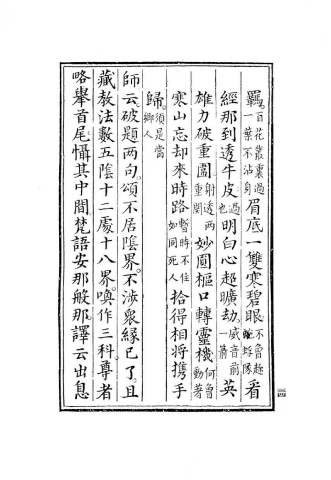 羈。百花叢裏過一葉不沾身眉底一雙寒碧眼不曾趂隊看
經那到透牛皮過也明白心超曠劫。威音前一箭英
雄力破重圍射透兩重關妙圓樞口轉靈機何曾動著
寒山忘却來時路暫時不住如同死人拾得相將攜手
歸。須是當鄉人
師云。破題兩句。頌不居陰界。不涉衆緣已了。且
藏教法數。五陰十二處十八界。喚作三科。尊者
略舉首尾懾其中間。梵語安那般那。譯云出息